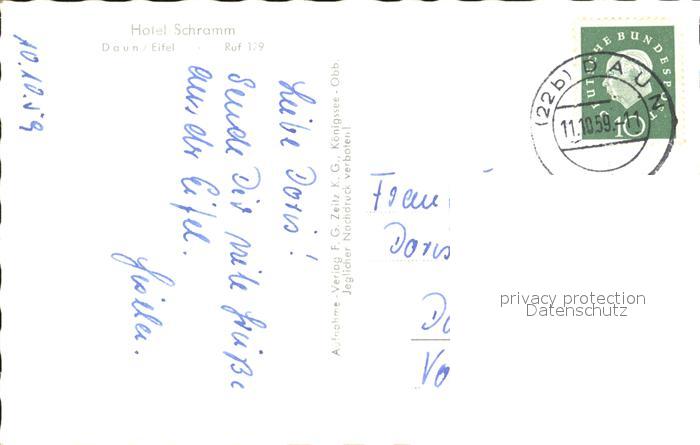 Hotel Schramm
Daun/Eifel · Ruf 129
10.10.59
Liebe Doris!
Sende Dir viele Grüße
aus der Eifel.
Aufnahme-Verlag F. G. Zeitz K. G., Königssee-Obb.
Jeglicher Nachdruck verboten!
DEUTSCHE BUNDESPOST
10
(22b) DAUN
11.10.59.-11
Frau
Doris
privacy protection
Datenschutz